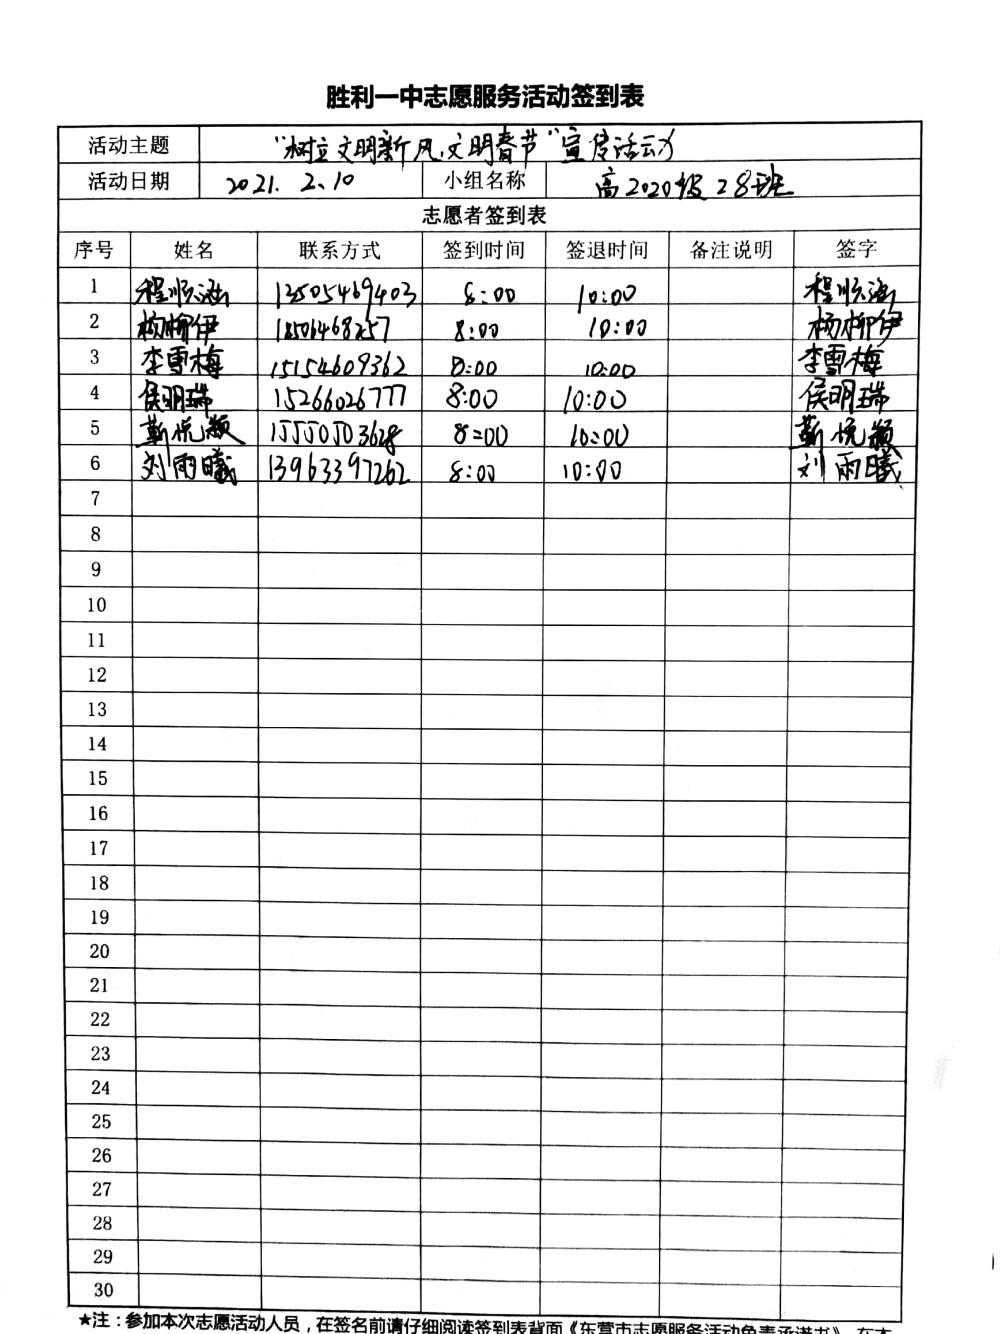 胜利一中志愿服务活动签到表
活动主题 "树立文明新风,文明春节"宣传活动
活动日期 2021.2.10 小组名称 高2020级28班
志愿者签到表
序号 姓名 联系方式 签到时间 签退时间 备注说明 签字
1 程顺涵 13505469403 8:00 10:00 程顺涵
2 杨柳伊 18506468257 8:00 10:00 杨柳伊
3 李雪梅 15154609362 8:00 10:00 李雪梅
4 侯明瑞 15266026777 8:00 10:00 侯明瑞
5 靳悦颖 15550503628 8:00 10:00 靳悦颖
6 刘雨曦 13963397262 8:00 10:00 刘雨曦
7
8
9
10
11
12
13
14
15
16
17
18
19
20
21
22
23
24
25
26
27
28
29
30
★注：参加本次志愿活动人员，在签名前请仔细阅读签到表背面《东营市志愿服务活动免责承诺书》，在本